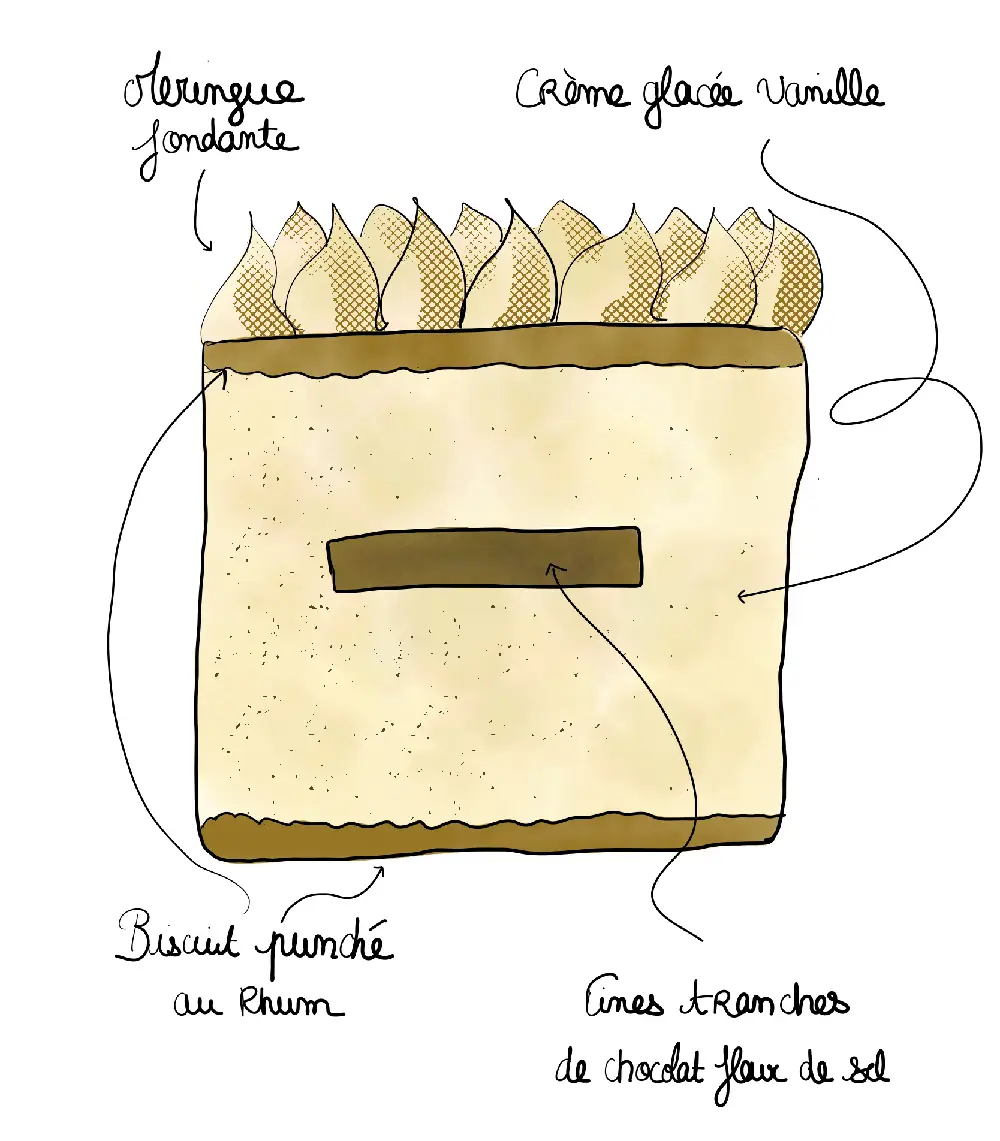 Meringue
fondante
Crème glacée Vanille
Biscuit punché
au Rhum
Fines tranches
de chocolat fleur de sel